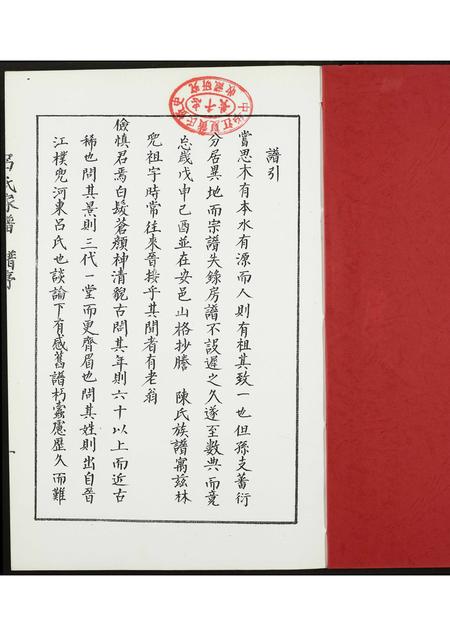 譜引
嘗思木有本水有源而人則有祖其致一也但孫支蕃衍
分居異地而宗譜失錄房譜不設遲之久遂至數典而竟
忘歲戊申己酉並在安邑山格抄謄 陳氏族譜寓茲林
兜祖宇時常往來晉接乎其間者有老翁
儉慎君焉白鬚蒼顏神清貌古問其年則六十以上而近古
稀也問其景則三代一堂而更齊眉也問其姓則出自晉
江樸兜河東呂氏也談論下有感舊譜朽蠹慮歷久而難
呂氏家譜 譜序 一